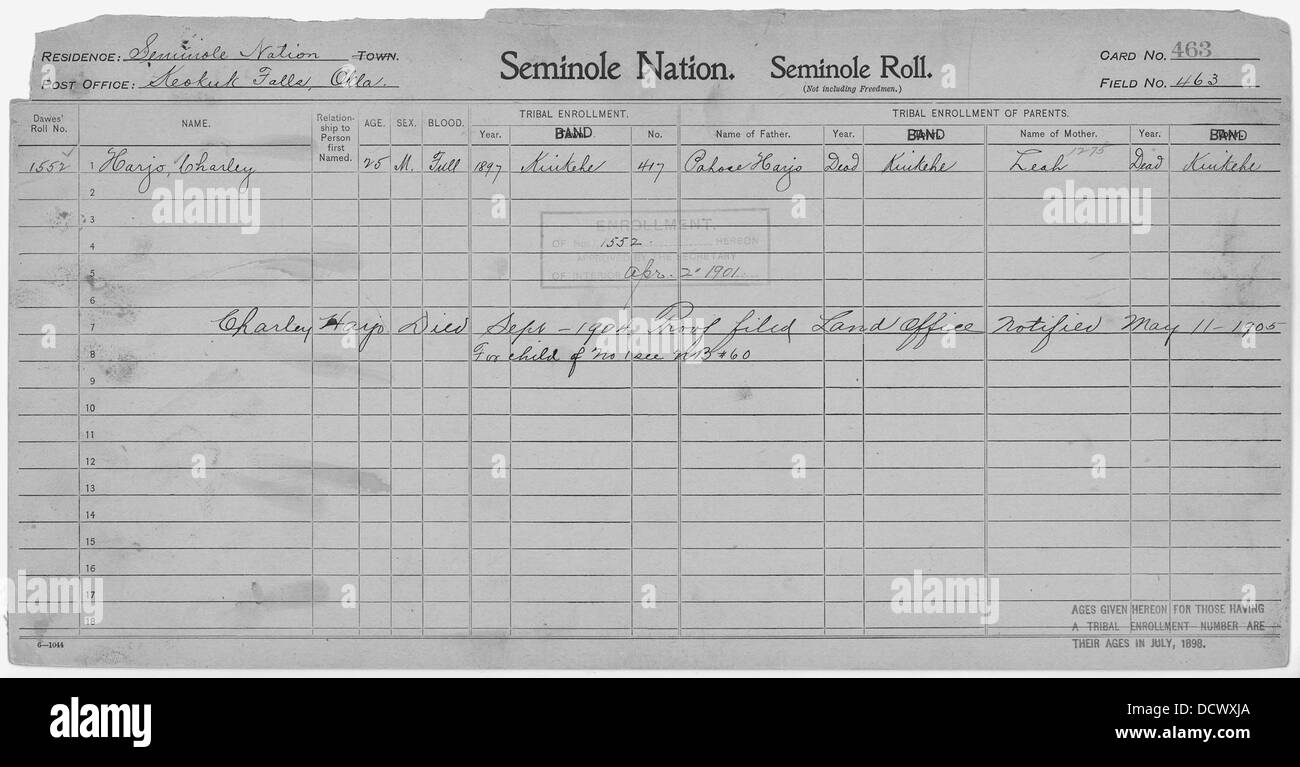 RESIDENCE: Seminole Nation TOWN.
POST OFFICE: Keokuk Falls, Okla.
Seminole Nation. Seminole Roll.
(Not including Freedmen.)
CARD NO. 463
FIELD NO. 463
Dawes' Roll No.
NAME.
Relationship to Person first Named.
AGE.
SEX.
BLOOD.
TRIBAL ENROLLMENT.
Year.
BAND
No.
TRIBAL ENROLLMENT OF PARENTS.
Name of Father.
Year.
BAND
Name of Mother.
Year.
BAND
1552 1 Harjo, Charley 25 M. Full 1897 Kinkehe 417 Cahose Harjo Dead Kinkehe Leah 1275 Dead Kinkehe
2
3
ENROLLMENT.
4
OF NOS. 1552 HEREON
APPROVED BY THE SECRETARY
5
OF INTERIOR Apr. 2 1901.
6
7 Charley Harjo Died Sept - 1904 Proof filed Land Office Notified May 11 - 1905
8 For child of No 1 see NB #60
9
10
11
12
13
14
15
16
17
18
AGES GIVEN HEREON FOR THOSE HAVING
A TRIBAL ENROLLMENT NUMBER ARE
THEIR AGES IN JULY, 1898.
6—1044
a alamy
alamy
Image ID: DCWXJA
www.alamy.com